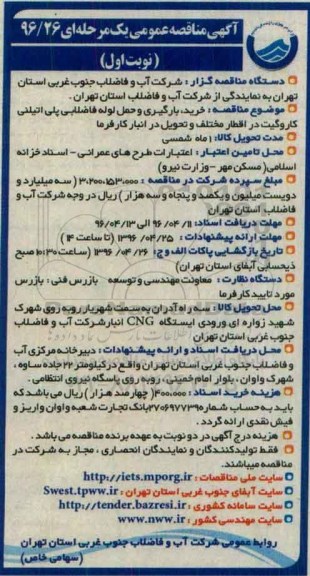 آگهی مناقصه عمومی یک مرحله‌ای ۹۶/۲۶
(نوبت اول)
دستگاه مناقصه گزار : شرکت آب و فاضلاب جنوب غربی استان
تهران به نمایندگی از شرکت آب و فاضلاب استان تهران .
موضوع مناقصه : خرید، بارگیری و حمل لوله فاضلابی پلی اتیلنی
کاروگیت در اقطار مختلف و تحویل در انبار کارفرما
مدت تحویل کالا: ۱ماه شمسی
محل تامین اعتبار : اعتبارات طرح های عمرانی - اسناد خزانه
اسلامی( مسکن مهر - وزارت نیرو)
مبلغ سپرده شرکت در مناقصه : ۳،۲۰۰،۱۵۳،۰۰۰ ( سه میلیارد و
دویست میلیون و یکصد و پنجاه و سه هزار ) ریال در وجه شرکت آب و
فاضلاب استان تهران
مهلت دریافت اسناد: ۹۶/۰۴/۱۱ الی ۹۶/۰۴/۱۳
مهلت ارائه پیشنهادات : ۱۳۹۶/۰۴/۲۵ (تا ساعت ۱۴)
تاریخ بازگشایی پاکات الف و ج: ۱۳۹۶/۰۴/۲۶ (ساعت ۱۰:۳۰ صبح
ذیحسابی آبفای استان تهران)
دستگاه نظارت : معاونت مهندسی و توسعه بازرس فنی : بازرس
مورد تایید کارفرما
محل تحویل کالا : سه راه آدران به سمت شهریار روبه روی شهرک
شهید زواره ای ورودی ایستگاه CNG انبار شرکت آب و فاضلاب
جنوب غربی استان تهران
محل دریافت اسناد و ارائه پیشنهادات : دبیرخانه مرکزی آب
و فاضلاب جنوب غربی استان تهران واقع در کیلومتر ۲۲ جاده ساوه ،
شهرک واوان ، بلوار امام خمینی ، روبه روی پاسگاه نیروی انتظامی .
هزینه خرید اسناد : ۴۰۰،۰۰۰( چهارصد هزار ) ریال می باشد که
باید به حساب شماره ۲۷۰۶۹۷۷۳۹۰ بانک تجارت شعبه واوان واریز و
فیش نقدی ارائه گردد .
هزینه درج آگهی در دو نوبت به عهده برنده مناقصه می باشد .
فقط تولیدکنندگان و نمایندگان انحصاری ، مجاز به شرکت در
مناقصه میباشند.
سایت ملی مناقصات : http://iets.mporg.ir
سایت آبفای جنوب غربی استان تهران : Swest.tpww.ir
سایت سامانه کشوری : http://tender.bazresi.ir
سایت مهندسی کشور : www.nww.ir
روابط عمومی شرکت آب و فاضلاب جنوب غربی استان تهران
(سهامی خاص)